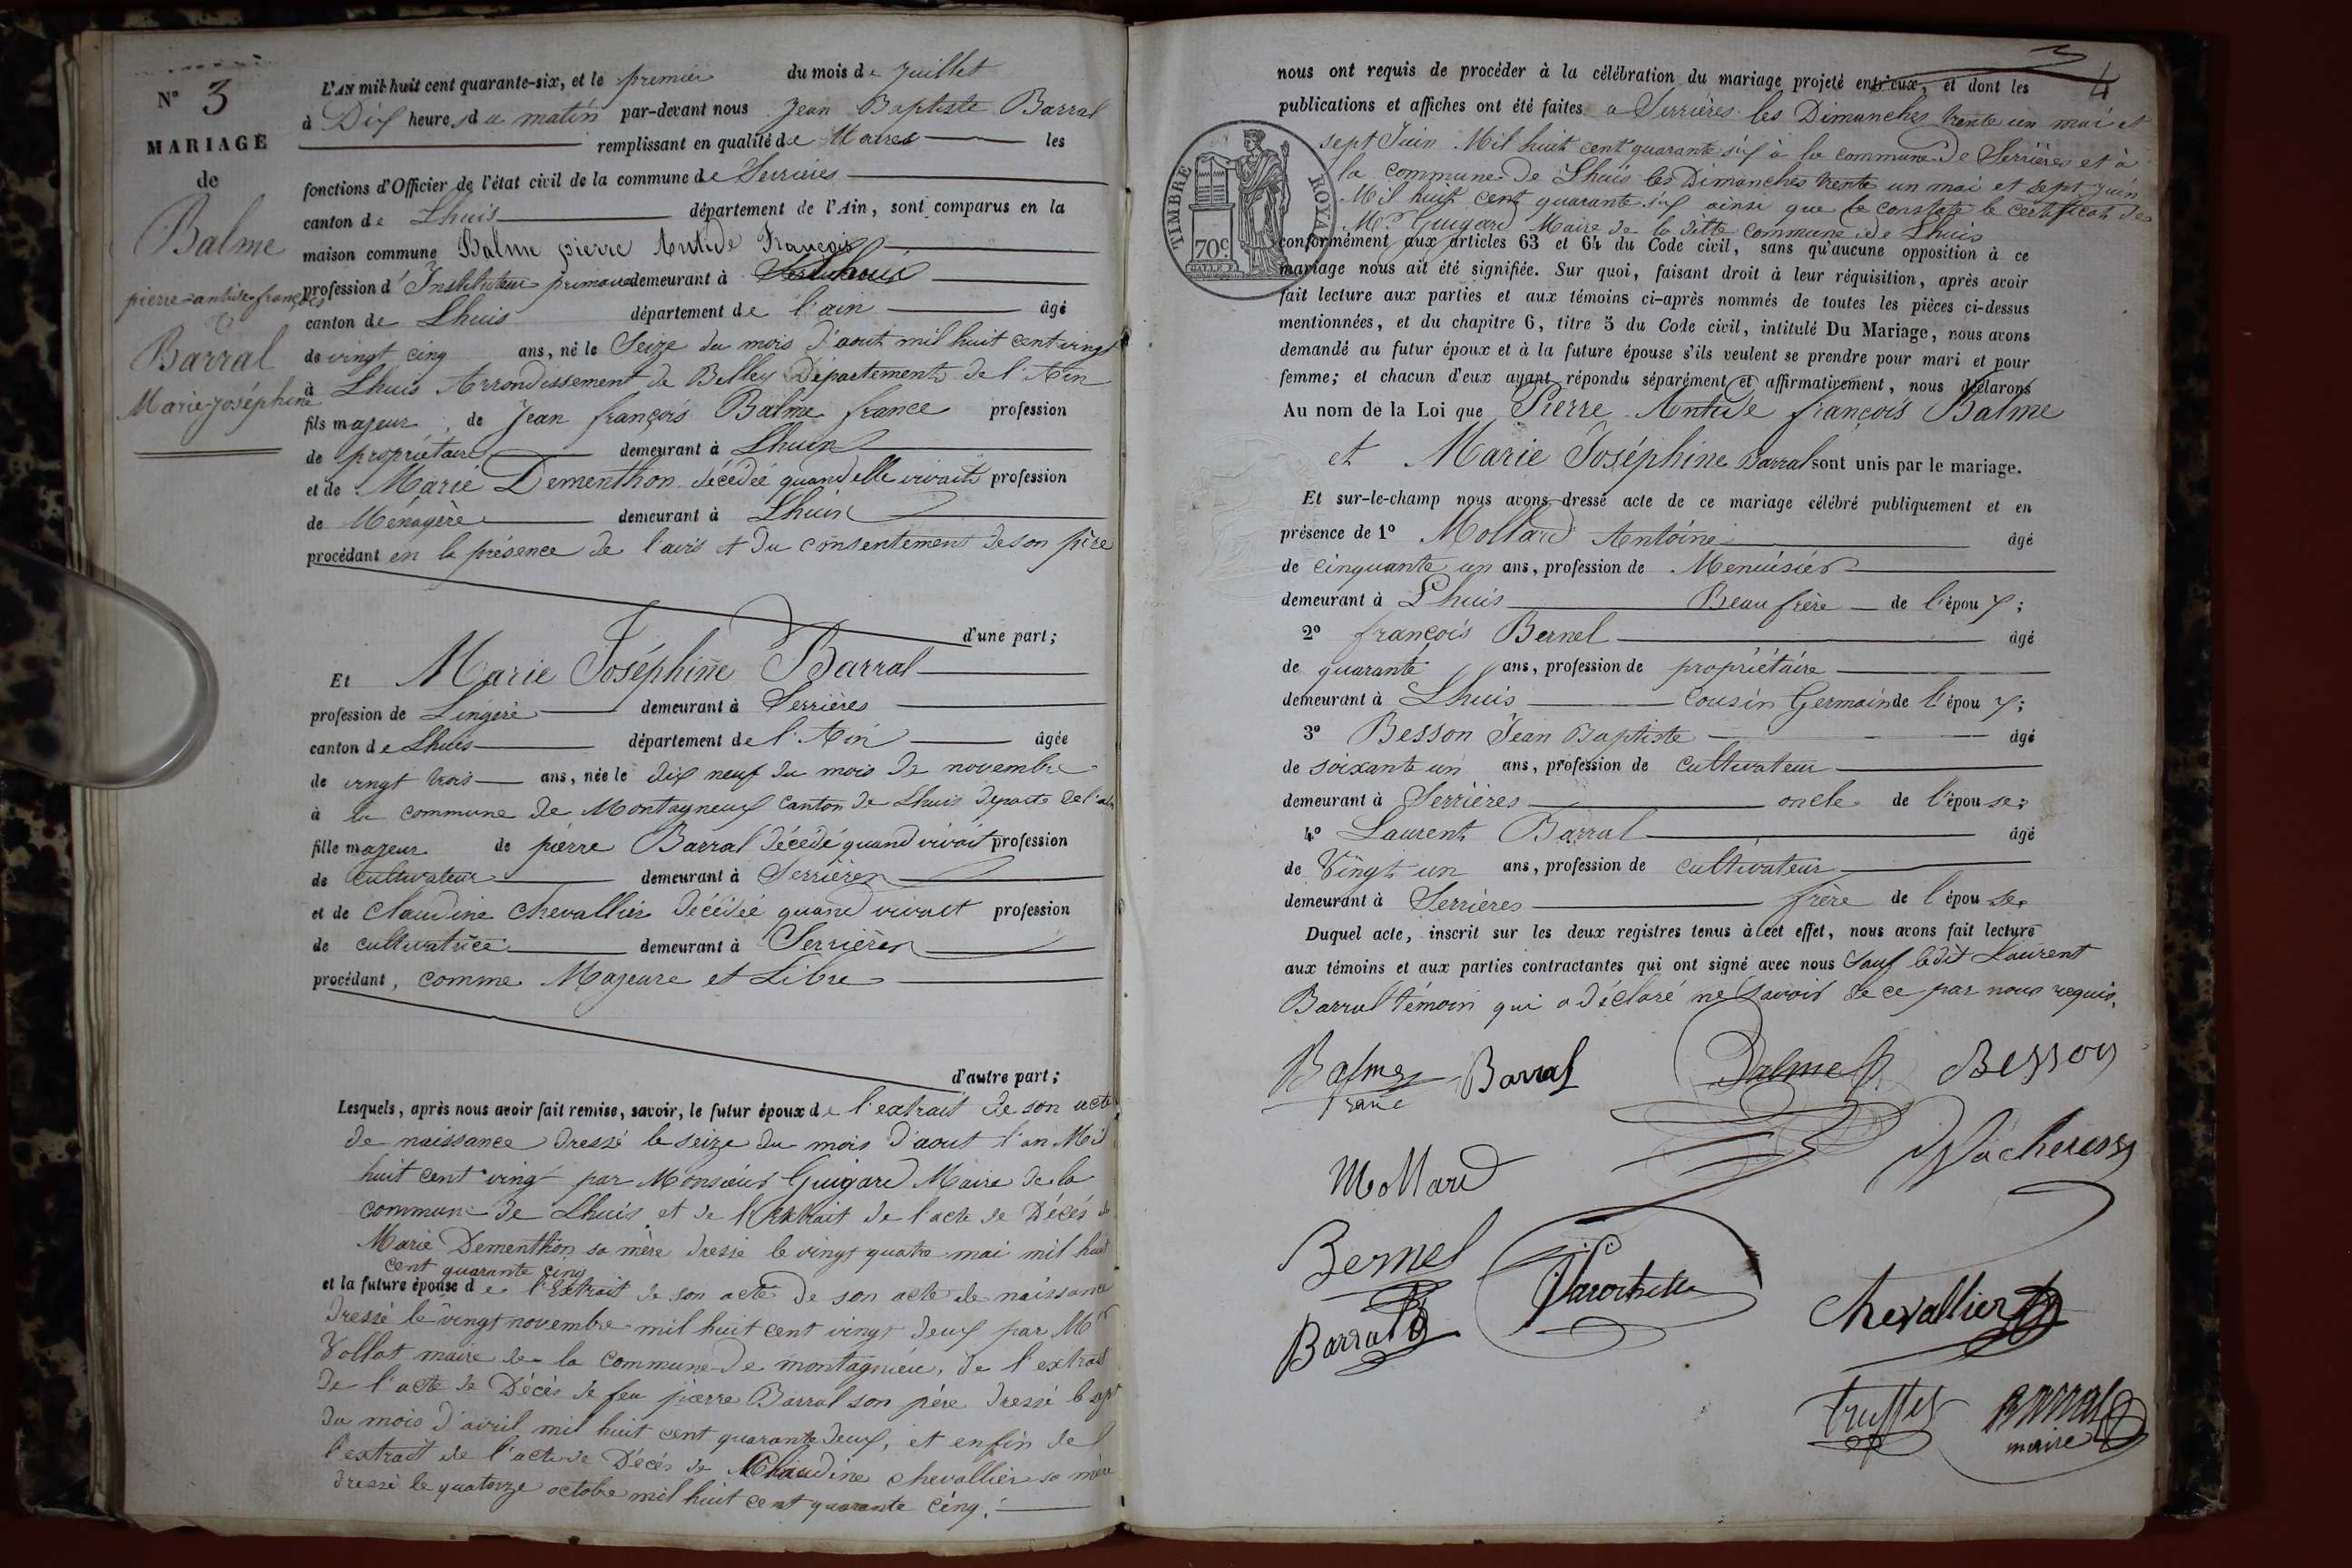 N° 3
MARIAGE
de
Balme
pierre-antide-françois
&
Barral
Marie-Joséphine
L'AN mil huit cent quarante-six, et le premier du mois de Juillet
à Dix heures du matin par-devant nous Jean Baptiste Barral
remplissant en qualité de Maire les
fonctions d'Officier de l'état civil de la commune de Serrières
canton de Lhuis département de l'Ain, sont comparus en la
maison commune Balme pierre Antide François
profession d'Instituteur primaire demeurant à Lhuis
canton de Lhuis département de l'ain âgé
de vingt cinq ans, né le Seize du mois d'aout mil huit cent vingt
à Lhuis Arrondissement de Belley Département de l'Ain
fils majeur, de Jean françois Balme france profession
de propriétaire demeurant à Lhuis
et de Marie Dementhon décédée quand elle vivait profession
de Ménagère demeurant à Lhuis
procédant en la présence de l'avis et du consentement de son père
d'une part;
Et Marie Joséphine Barral
profession de Lingère demeurant à Serrières
canton de Lhuis département de l'Ain âgée
de vingt trois ans, née le dix neuf du mois de novembre
à la commune de Montagneux canton de Lhuis départt de l'ain
fille majeur de pierre Barral décédé quand vivait profession
de cultivateur demeurant à Serrières
et de Claudine Chevallier décédée quand vivait profession
de cultivatrice demeurant à Serrières
procédant, comme Majeure et Libre
d'autre part;
Lesquels, après nous avoir fait remise, savoir, le futur époux de l'extrait de son acte
de naissance dressé le seize du mois d'aout l'an Mil
huit cent vingt par Monsieur Guigard Maire de la
commune de Lhuis et de l'Extrait de l'acte de Décès de
Marie Dementhon sa mère dressé le vingt quatre mai mil huit
cent quarante cinq
et la future épouse de l'Extrait de son acte de son acte de naissance
dressé le vingt novembre mil huit cent vingt deux par Mr
Vollat maire de la commune de montagnieu, de l'extrait
de l'acte de Décès de feu pierre Barral son père dressé le sept
du mois d'avril mil huit cent quarante deux, et enfin de
l'extrait de l'acte de Décès de Claudine chevallier sa mère
dressé le quatorze octobre mil huit cent quarante cinq.
4
nous ont requis de procéder à la célébration du mariage projeté entr'eux, et dont les
publications et affiches ont été faites a Serrières les Dimanches trente un mai et
sept Juin Mil huit cent quarante six à la commune De Serrières et à
la commune De Lhuis les Dimanches trente un mai et sept juin
Mil huit cent quarante six ainsi que le constate le certificat de
Mr Guigard Maire de la ditte commune de Lhuis
TIMBRE ROYAL
70c
conformément aux articles 63 et 64 du Code civil, sans qu'aucune opposition à ce
mariage nous ait été signifiée. Sur quoi, faisant droit à leur réquisition, après avoir
fait lecture aux parties et aux témoins ci-après nommés de toutes les pièces ci-dessus
mentionnées, et du chapitre 6, titre 5 du Code civil, intitulé Du Mariage, nous avons
demandé au futur époux et à la future épouse s'ils veulent se prendre pour mari et pour
femme; et chacun d'eux ayant répondu séparément et affirmativement, nous déclarons
Au nom de la Loi que Pierre Antide françois Balme
et Marie Joséphine Barral sont unis par le mariage.
Et sur-le-champ nous avons dressé acte de ce mariage célébré publiquement et en
présence de 1° Mollard Antoine âgé
de cinquante un ans, profession de Menuisier
demeurant à Lhuis Beau frère de l'époux;
2° françois Bernel âgé
de quarante ans, profession de propriétaire
demeurant à Lhuis cousin Germain de l'époux;
3° Besson Jean Baptiste âgé
de soixante un ans, profession de cultivateur
demeurant à Serrières oncle de l'épouse;
4° Laurent Barral âgé
de Vingt un ans, profession de cultivateur
demeurant à Serrières frère de l'épouse.
Duquel acte, inscrit sur les deux registres tenus à cet effet, nous avons fait lecture
aux témoins et aux parties contractantes qui ont signé avec nous Sauf ledit Laurent
Barral témoin qui a déclaré ne Savoir de ce par nous requis.
Balme Barral Balme Besson
france
Mollard Vacheresse
Bernel Larochette
Barral Chevallier
Truffet Barral
maire